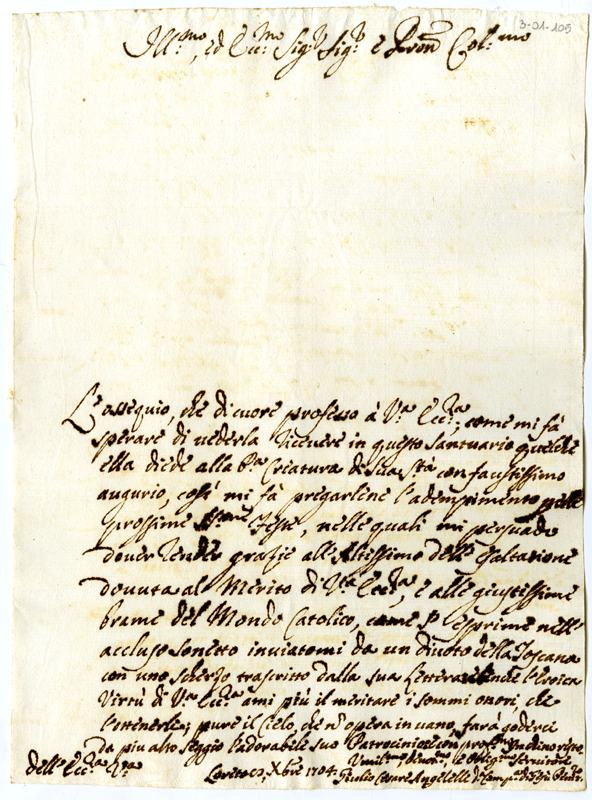 3-01-105
Ill.mo, ed Ecc.mo Sig.r Sig.r e Pron Col.mo
L'ossequio, che di cuore professo à V.a Ecc.za, come mi fà
sperare di uederla riceuere in questo Santuario quel che
ella diede alla P.a Criatura di Sua S.tà con faustissimo
augurio, così mi fà pregarlene l'adempimento nelle
prossime S.me Feste, nelle quali mi persuado
douer render grazie all'Altissimo dell'esaltazione
douuta al Merito di V.a Ecc.za, e alle giustissime
brame del Mondo Catolico, come si esprime nell'
accluso sonetto inuiatomi da un diuoto della Toscana
con uno scherzo trascritto dalla sua lettera; benche l'eroica
Virtù di V.a Ecc.za ami più il meritare i sommi onori, che
l'ottenerli; pure il Cielo, che nō opera in uano, farà goderci
da piu alto seggio l'adorabile suo Patrocinio; e con prof.mo inchino resto
dell'Ecc.za V.a
Loreto Xbre 1704.
Umil.mo Diuot.mo, e Oblig.mo Seruitore
Giulio Cesare Angelelli